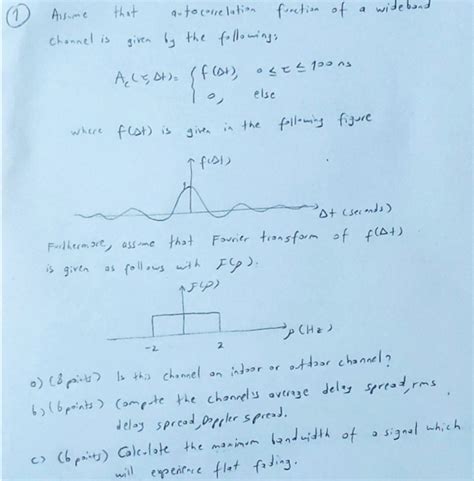 1 Assume that autocorrelation function of a wideband
channel is given by the followings;
Ac(τ, Δt) = { f(Δt), 0 ≤ τ ≤ 100 ns
0, else
where f(Δt) is given in the following figure
f(Δt)
1
Δt (seconds)
Furthermore, assume that Fourier transform of f(Δt)
is given as follows with F(ρ).
F(ρ)
ρ (Hz)
-2 2
a) (8 points) Is this channel an indoor or outdoor channel?
b) (6 points) Compute the channel's average delay spread, rms
delay spread, Doppler spread.
c) (6 points) Calculate the maximum bandwidth of a signal which
will experience flat fading.